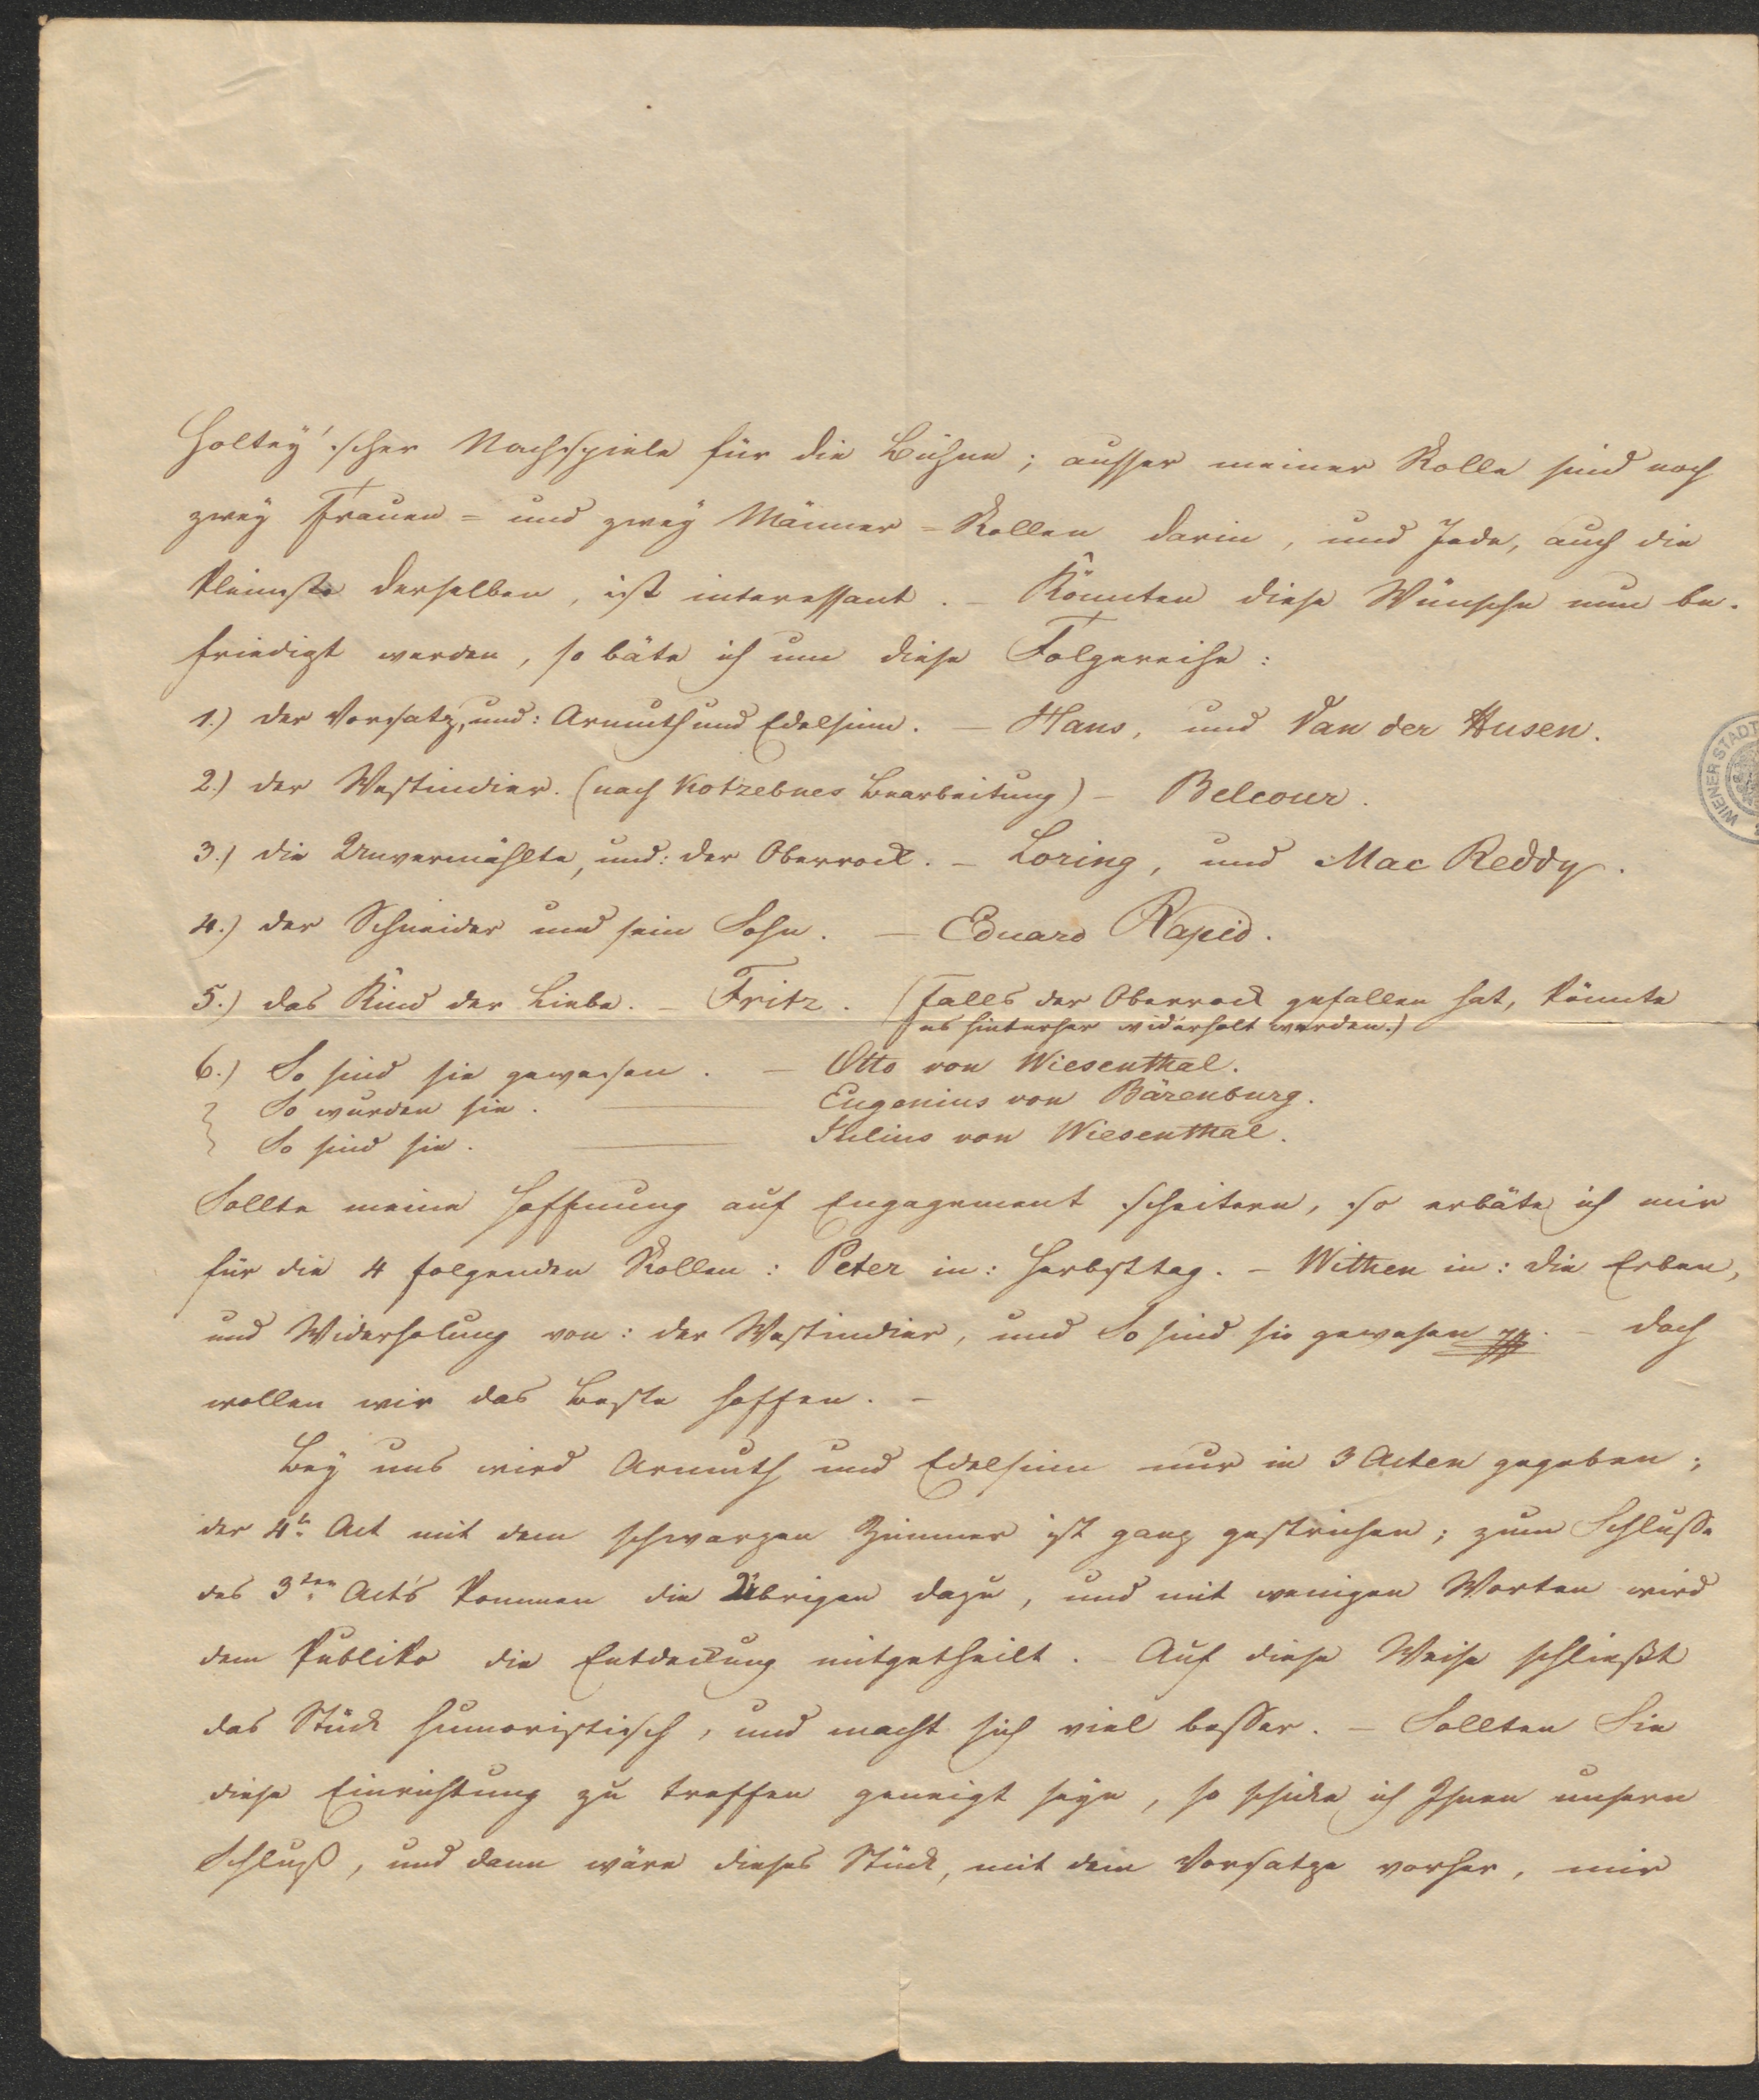 Holtey'scher Nachspiele für die Bühne; ausser meiner Rolle sind noch
zwey Frauen- und zwey Männer-Rollen darin, und Jede, auch die
kleinste derselben, ist interessant. – Könnten diese Wünsche nun be-
friedigt werden, so bäte ich um diese Folgereihe:
1.) der Vorsatz, und: Armuth und Edelsinn. – Hans, und Van der Husen.
2.) der Westindier. (nach Kotzebues Bearbeitung) – Belcour.
3.) die Unvermählte, und: der Oberrock. – Loring, und Mac Reddy.
4.) der Schneider und sein Sohn. – Eduard Rapid.
5.) das Kind der Liebe. – Fritz. (Falls der Oberrock gefallen hat, könnte
es hinterher widerholt werden.)
6.) So sind sie gewesen. – Otto von Wiesenthal.
So wurden sie. – Eugenius von Bärenburg.
So sind sie. – Julius von Wiesenthal.
Sollte meine Hoffnung auf Engagement scheitern, so erbäte ich mir
für die 4 folgenden Rollen: Peter in: Herbsttag. – Withen in: die Erben,
und Widerholung von: der Westindier, und So sind sie gewesen – doch
wollen wir das Beste hoffen. –
Bey uns wird Armuth und Edelsinn nur in 3 Acten gegeben;
der 4te Act mit dem schwarzen Zimmer ist ganz gestrichen; zum Schlusse
des 3ten Act's kommen die Übrigen dazu, und mit wenigen Worten wird
dem Publiko die Entdeckung mitgetheilt. – Auf diese Weise schließt
das Stück humoristisch, und macht sich viel besser. – Sollten Sie
diese Einrichtung zu treffen geneigt seyn, so schicke ich Ihnen unsern
Schluß, und dann wäre dieses Stück, mit dem Vorsatze vorher, mir
WIENER STADT